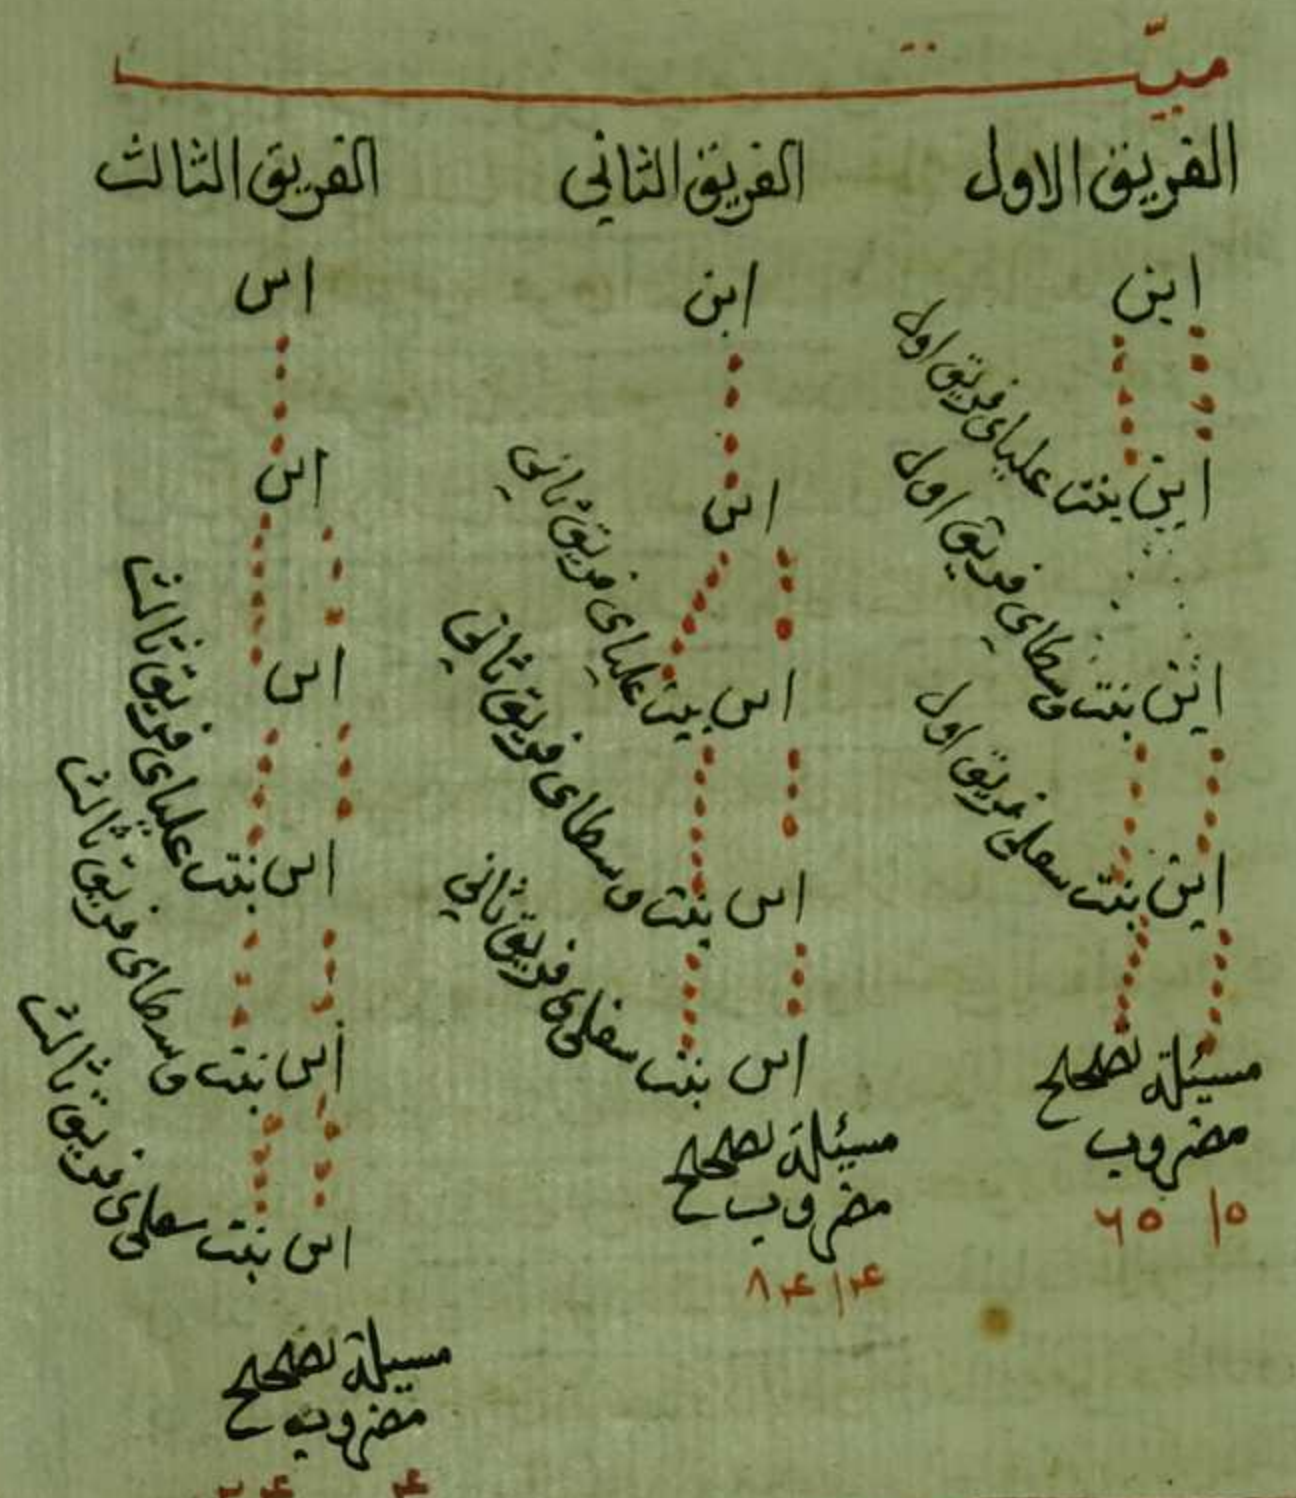 ميّت
الفريق الاول
ابن
ابن بنت علياى فريق اول
ابن بنت وسطاى فريق اول
ابن بنت سفلى فريق اول
مسئلة تصحيح
مضروب
۱۵ ۶۵
الفريق الثاني
ابن
ابن
ابن بنت علياى فريق ثاني
ابن بنت وسطاى فريق ثاني
ابن بنت سفلى فريق ثاني
مسئلة تصحيح
مضروب
الفريق الثالث
ابن
ابن
ابن
ابن بنت علياى فريق ثالث
ابن بنت وسطاى فريق ثالث
ابن بنت سفلى فريق ثالث
مسيلة تصحيح
مضروب